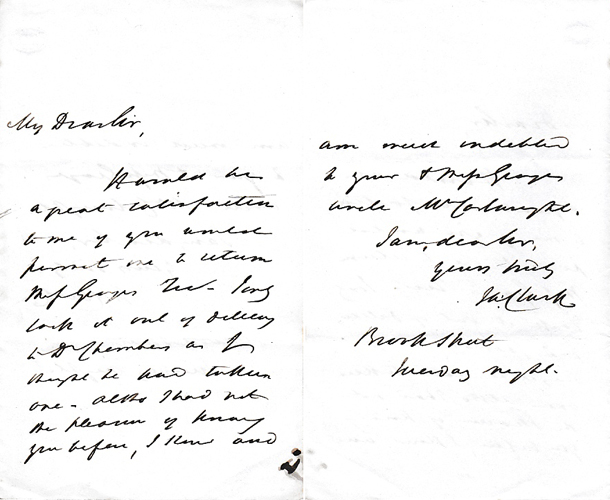 My Dear Sir,
It would be
a great satisfaction
to me if you would
permit me to return
Miss Georges fee - I only
took it out of delicacy
to Dr Chambers as I
thought he had taken
one - altho I had not
the pleasure of knowing
you before, I knew and
am much indebted
to your & Miss Georges
uncle Mr Cartwright.
I am, dear Sir,
yours truly
Ja. Clark
Brook Street
Tuesday night.